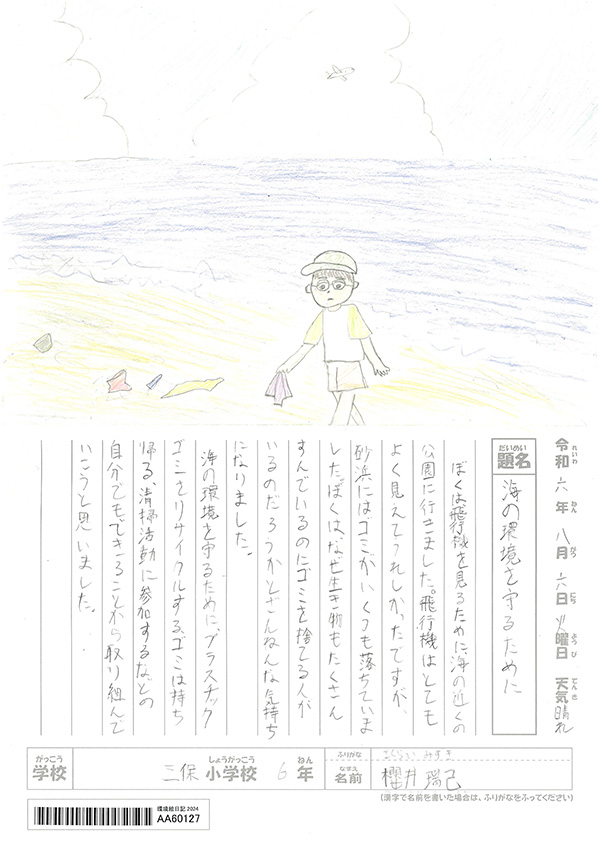 令和六年八月六日火曜日 天気晴れ
れいわ ねん がつ にち ようび てんき
だいめい
題名 海の環境を守るために
ぼくは飛行機を見るために、海の近くの
公園に行きました。飛行機はとても
よく見えてうれしかったですが、
砂浜にはゴミがいくつも落ちていま
した。ぼくは、なぜ生き物もたくさん
すんでいるのにゴミを捨てる人が
いるのだろうかとざんねんな気持ち
になりました。
海の環境を守るために、プラスチック
ゴミをリサイクルする、ゴミは持ち
帰る、清掃活動に参加するなどの
自分でもできることから取り組んで
いこうと思いました。
がっこう しょうがっこう ねん
学校 三保小学校 6年
ふりがな さくらい みずき
なまえ
名前 櫻井 瑞己
(漢字で名前を書いた場合は、ふりがなをふってください)
環境絵日記 2024
AA60127